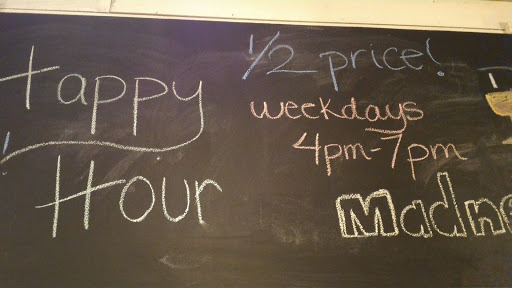 Happy
Hour
1/2 price!
weekdays
4pm-7pm
Madne